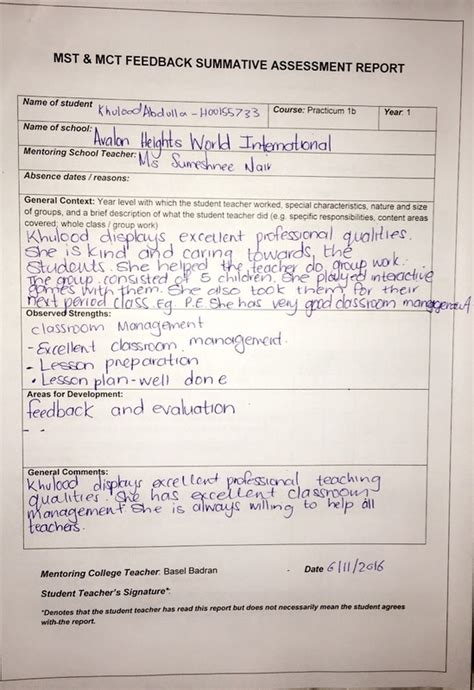 MST & MCT FEEDBACK SUMMATIVE ASSESSMENT REPORT
Name of student Khulood Abdulla - H00155733 Course: Practicum 1b Year: 1
Name of school: Avalon Heights World International
Mentoring School Teacher: Ms Sumeshnee Nair
Absence dates / reasons:
General Context: Year level with which the student teacher worked, special characteristics, nature and size
of groups, and a brief description of what the student teacher did (e.g. specific responsibilities, content areas
covered; whole class / group work)
Khulood displays excellent professional qualities.
She is kind and caring towards, the
Students. She helped the teacher do group work.
The group consisted of 5 children. She played interactive
games with them. She also took them for their
next period class. Eg P.E. She has very good classroom
Observed Strengths:
classroom Management
- Excellent classroom management.
- Lesson preparation
• Lesson plan - well done
Areas for Development:
feedback and evaluation
- -
General Comments:
Khulood displays excellent professional teaching
qualities. She has excellent classroom
management She is always willing to help all
teachers.
Mentoring College Teacher: Basel Badran - Date 6/11/2016
Student Teacher's Signature*:
*Denotes that the student teacher has read this report but does not necessarily mean the student agrees
with the report.